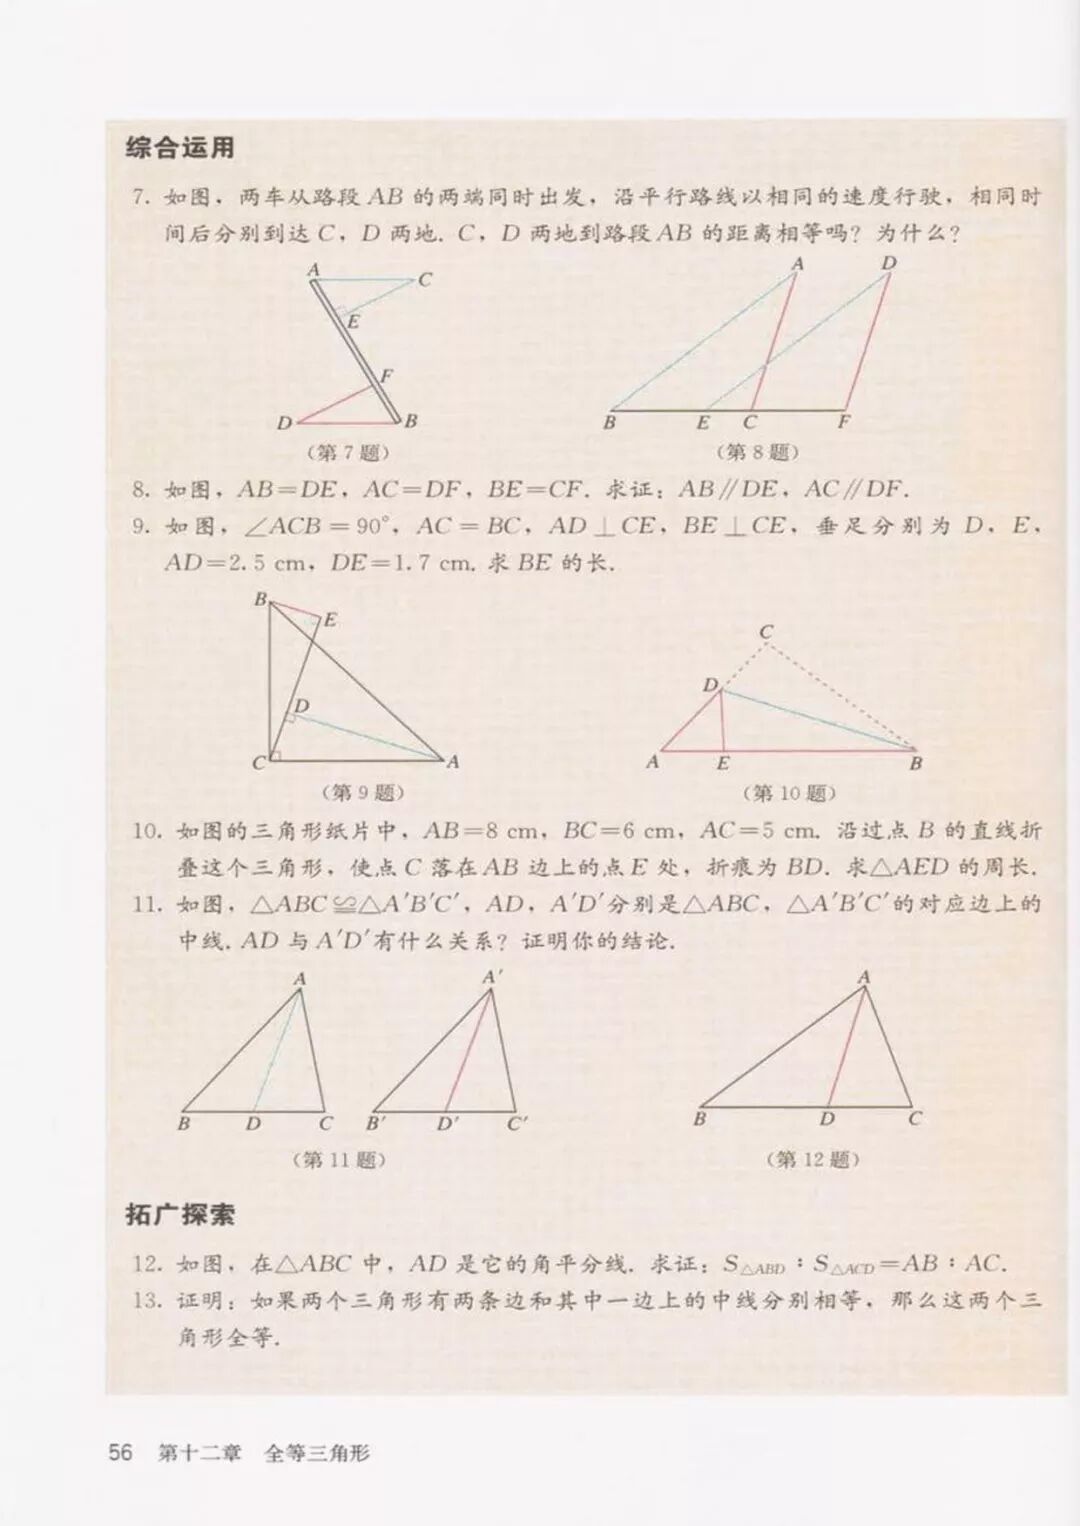 综合运用
7. 如图，两车从路段 AB 的两端同时出发，沿平行路线以相同的速度行驶，相同时
间后分别到达 C，D 两地. C，D 两地到路段 AB 的距离相等吗？为什么？
A
C
E
F
D
B
（第 7 题）
A
D
B
E
C
F
（第 8 题）
8. 如图，AB=DE，AC=DF，BE=CF. 求证：AB∥DE，AC∥DF.
9. 如图，∠ACB=90°，AC=BC，AD⊥CE，BE⊥CE，垂足分别为 D，E，
AD=2.5 cm，DE=1.7 cm. 求 BE 的长.
B
E
D
C
A
（第 9 题）
C
D
A
E
B
（第 10 题）
10. 如图的三角形纸片中，AB=8 cm，BC=6 cm，AC=5 cm. 沿过点 B 的直线折
叠这个三角形，使点 C 落在 AB 边上的点 E 处，折痕为 BD. 求△AED 的周长.
11. 如图，△ABC≌△A′B′C′，AD，A′D′分别是△ABC，△A′B′C′的对应边上的
中线. AD 与 A′D′有什么关系？证明你的结论.
A
B
D
C
A′
B′
D′
C′
（第 11 题）
A
B
D
C
（第 12 题）
拓广探索
12. 如图，在△ABC 中，AD 是它的角平分线. 求证：S△ABD∶S△ACD=AB∶AC.
13. 证明：如果两个三角形有两条边和其中一边上的中线分别相等，那么这两个三
角形全等.
56 第十二章 全等三角形